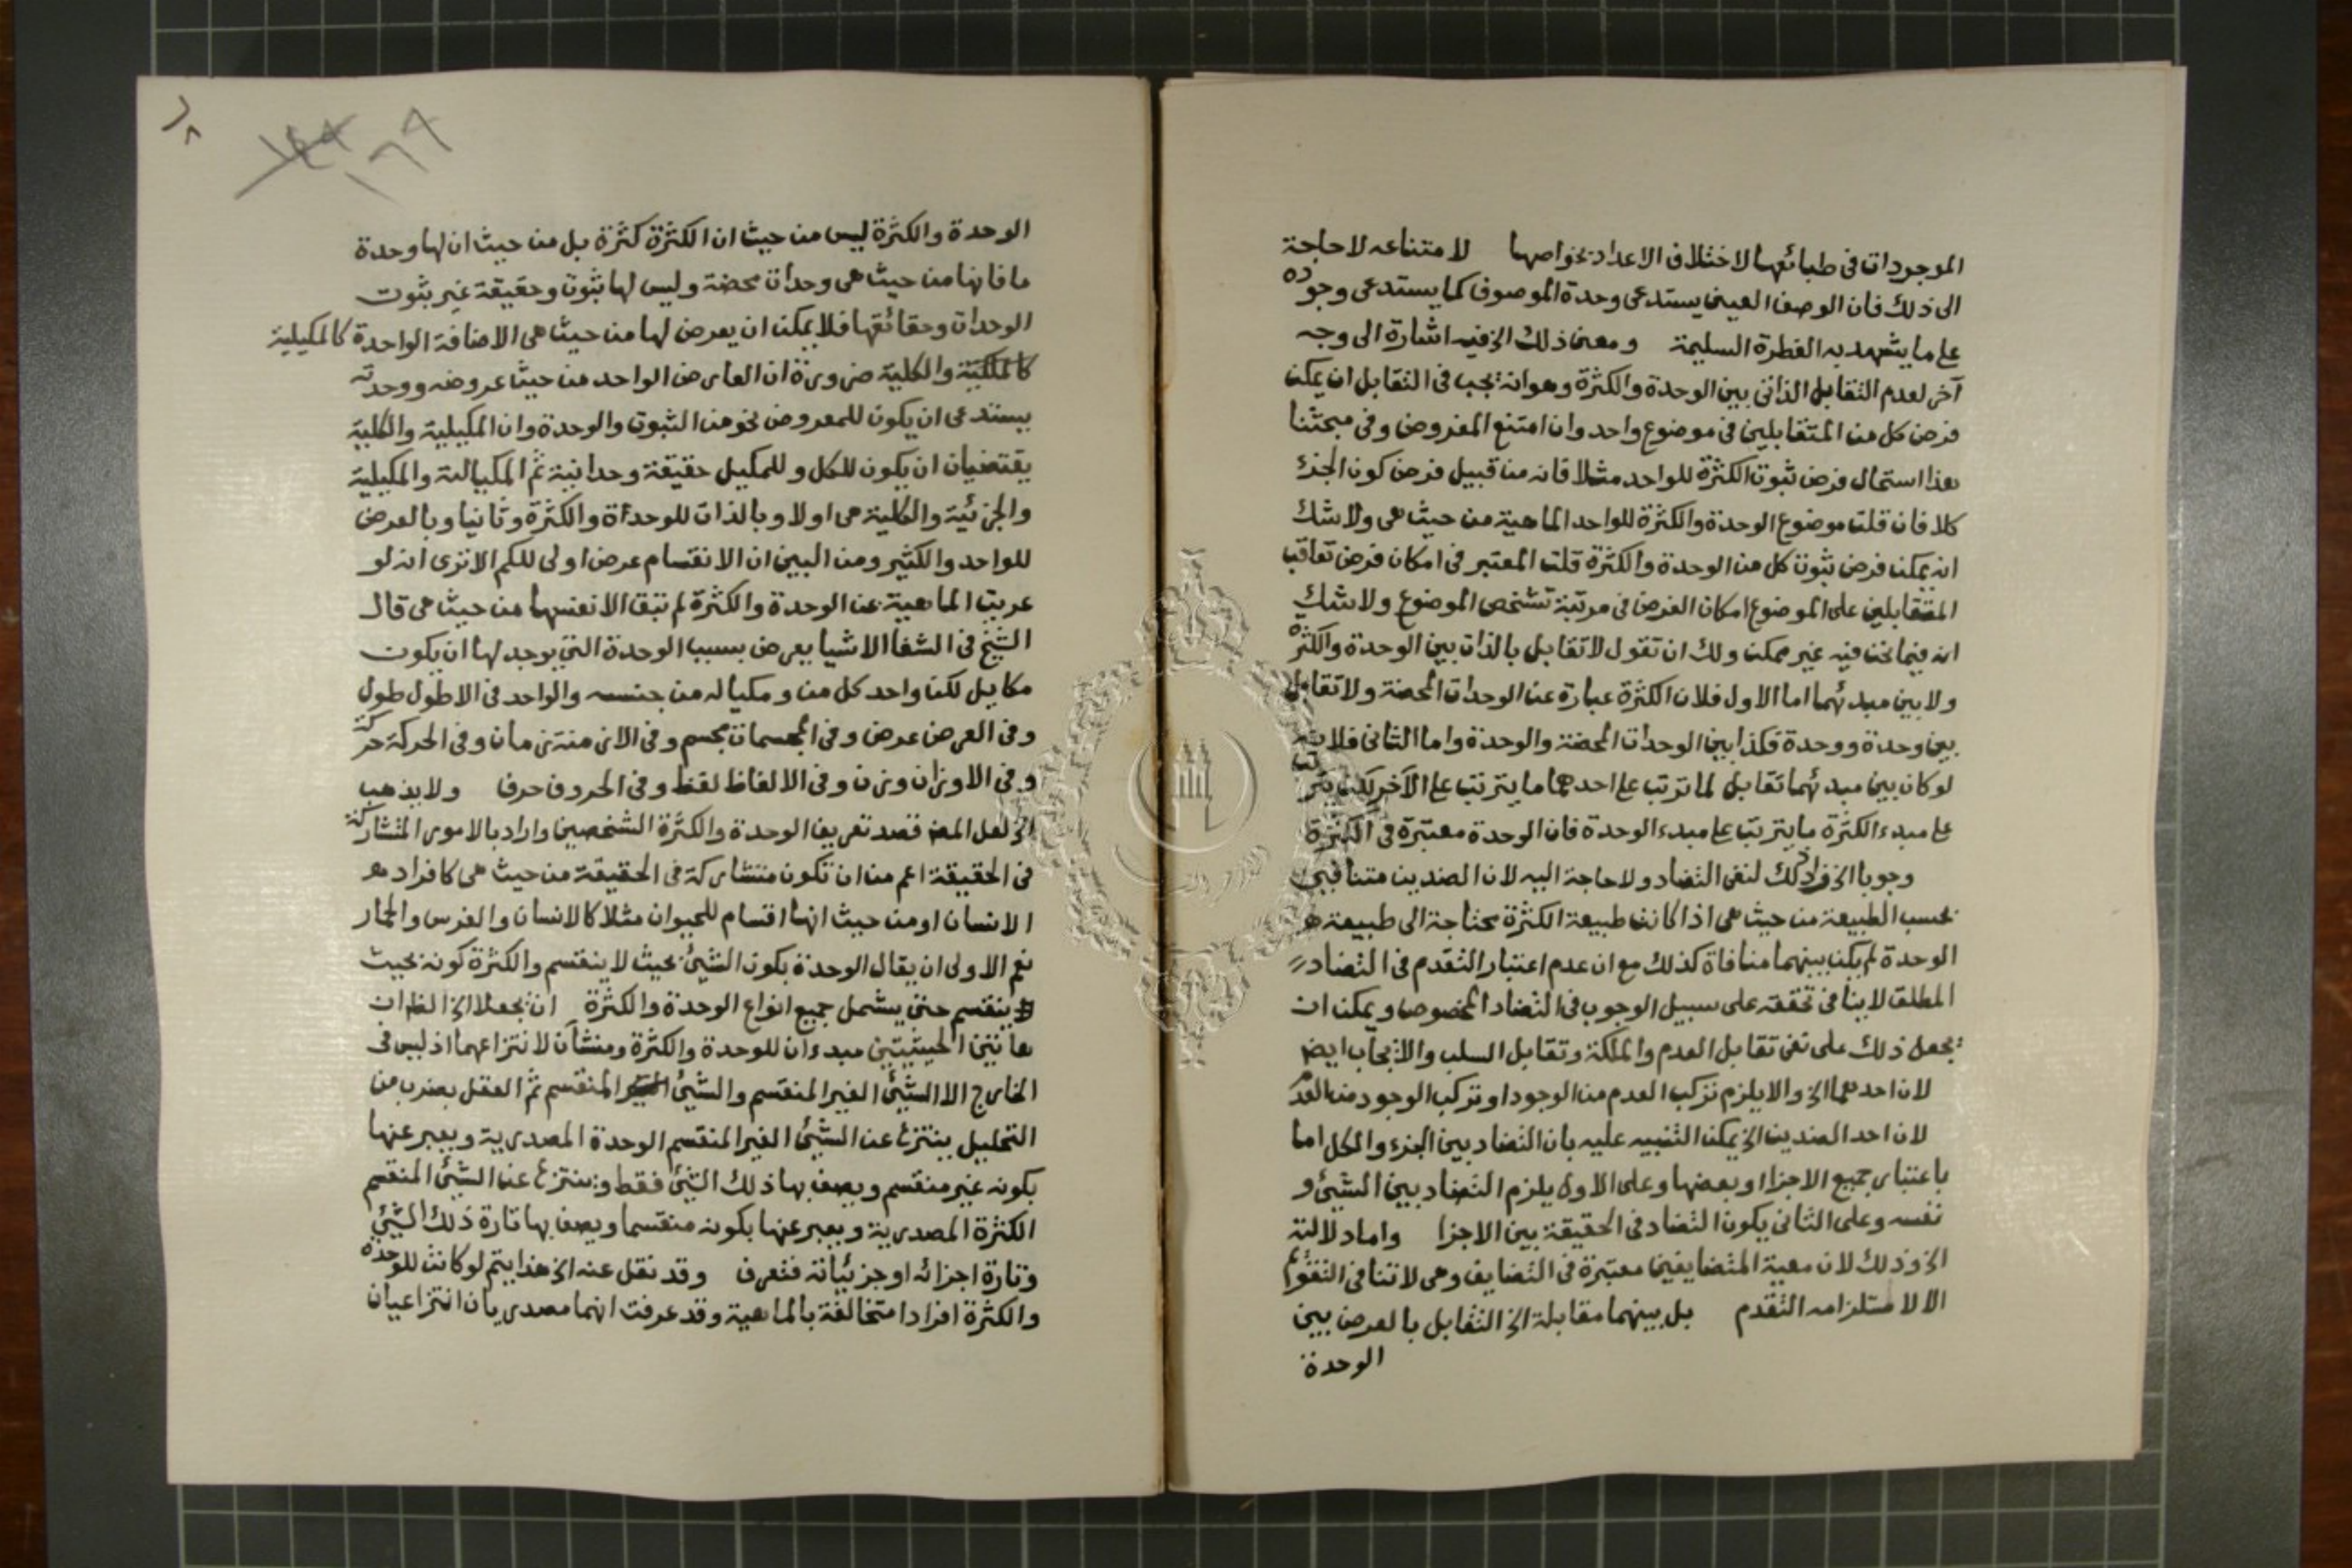 الموجودات فى طبائعها لاختلاف الاعداد بخواصها لامتناعه لا حاجة
الى ذلك فان الوصف العينى يستدعى وحدة الموصوف كما يستدعى وجوده
على ما يشهد به الفطرة السليمة ومعنى ذلك الخ فيه اشارة الى وجه
آخر لعدم التقابل الذاتى بين الوحدة والكثرة وهو انه يجب فى التقابل ان يمكن
فرض كل من المتقابلين فى موضوع واحد وان امتنع المفروض وفى مبحثنا
هذا استحال فرض ثبوت الكثرة للواحد مثلا فانه من قبيل فرض كون الجزء
كلا فان قلت موضوع الوحدة والكثرة للواحد الماهية من حيث هى ولا شك
انه يمكن فرض ثبوت كل من الوحدة والكثرة قلت المعتبر فى امكان فرض تعاقب
المتقابلين على الموضوع امكان الفرض فى مرتبة تشخص الموضوع ولا شك
انه فيما نحن فيه غير ممكن ولك ان تقول لا تقابل بالذات بين الوحدة والكثرة
ولا بين مبدئهما اما الاول فلان الكثرة عبارة عن الوحدات المحضة ولا تقابل
بين وحدة ووحدة فكذا بين الوحدات المحضة والوحدة واما الثانى فلانه
لو كان بين مبدئهما تقابل لما ترتب على احدهما ما يترتب على الآخر لكن يترتب
على مبدء الكثرة ما يترتب على مبدء الوحدة فان الوحدة معتبرة فى الكثرة
وجوبا الخ فزاد ذلك لنفى التضاد ولا حاجة اليه لان الضدين متنافيى
بحسب الطبيعة من حيث هى اذا كانت طبيعة الكثرة محتاجة الى طبيعة
الوحدة لم يكن بينهما منافاة كذلك مع ان عدم اعتبار التقدم فى التضاد
المطلق لا ينافى تحققه على سبيل الوجوب فى التضاد المخصوص ويمكن ان
يجعل ذلك على نفى تقابل العدم والملكة وتقابل السلب والايجاب ايضا
لان احدهما الخ والا يلزم تركب العدم من الوجود او تركب الوجود من العدم
لان احد الضدين الخ يمكن التنبيه عليه بان التضاد بين الجزء والكل اما
باعتبار جميع الاجزا او بعضها وعلى الاول يلزم التضاد بين الشيئ و
نفسه وعلى الثانى يكون التضاد فى الحقيقة بين الاجزا واما دلالته
الخ وذلك لان معية المتضايفين معتبرة فى التضايف وهى لا تنافى التقوم
الا لاستلزامه التقدم بل بينهما مقابلة الخ التقابل بالعرض بين
الوحدة
٢٨
١٤٨ ١٦٩
الوحدة والكثرة ليس من حيث ان الكثرة كثرة بل من حيث ان لها وحدة
ما فانها من حيث هى وحدات محضة وليس لها ثبوت وحقيقة غير ثبوت
الوحدات وحقائقها فلا يمكن ان يعرض لها من حيث هى الاضافة الواحدة كالمكيلية
كالملكية والكلية ضرورة ان العارض الواحد من حيث عروضه ووحدته
يستدعى ان يكون للمعروض نحو من الثبوت والوحدة وان المكيلية والكلية
يقتضيان ان يكون للكل وللمكيل حقيقة وحدانية ثم المكيالية والمكيلية
والجزئية والكلية هى اولا وبالذات للوحدة والكثرة وثانيا وبالعرض
للواحد والكثير ومن البين ان الانقسام عرض اولى للكم الا ترى انه لو
عريت الماهية عن الوحدة والكثرة لم تبق الا نفسها من حيث هى قال
الشيخ فى الشفا الاشيا يعرض بسبب الوحدة التى يوجد لها ان يكون
مكاييل لكن واحد كل من ومكياله من جنسه والواحد فى الاطول طول
وفى العرض عرض وفى المجسمات مجسم وفى الازمنة زمان وفى الحركة حركة
وفى الاوزان وزن وفى الالفاظ لفظ وفى الحروف حرف ولا يذهب
الخ لعل المصـ قصد تعريف الوحدة والكثرة الشخصين واراد بالامور المتشاركة
فى الحقيقة اعم من ان تكون متشاركة فى الحقيقة من حيث هى كافراد
الانسان او من حيث انها اقسام للحيوان مثلا كالانسان والفرس والحمار
نعم الاولى ان يقال الوحدة بكون الشيئ بحيث لا ينقسم والكثرة كونه بحيث
ينقسم حتى يشمل جميع انواع الوحدة والكثرة ان يجعلا الخ الظ ان
هاتين الحيثيتين مبدءان للوحدة والكثرة ومنشآن لانتزاعهما اذ ليس فى
الخارج الا الشيئ الغير المنقسم والشيئ المنقسم ثم العقل بضرب من
التحليل ينتزع عن الشيئ الغير المنقسم الوحدة المصدرية ويعبر عنها
بكونه غير منقسم ويصف بها ذلك الشيئ فقط وينتزع عن الشيئ المنقسم
الكثرة المصدرية ويعبر عنها بكونه منقسما ويصف بها تارة ذلك الشيئ
وتارة اجزائه او جزئياته فتعرف وقد نقل عنه الخ هذا يتم لو كانت للوحدة
والكثرة افرادا متخالفة بالماهية وقد عرفت انهما مصدريان انتزاعيان